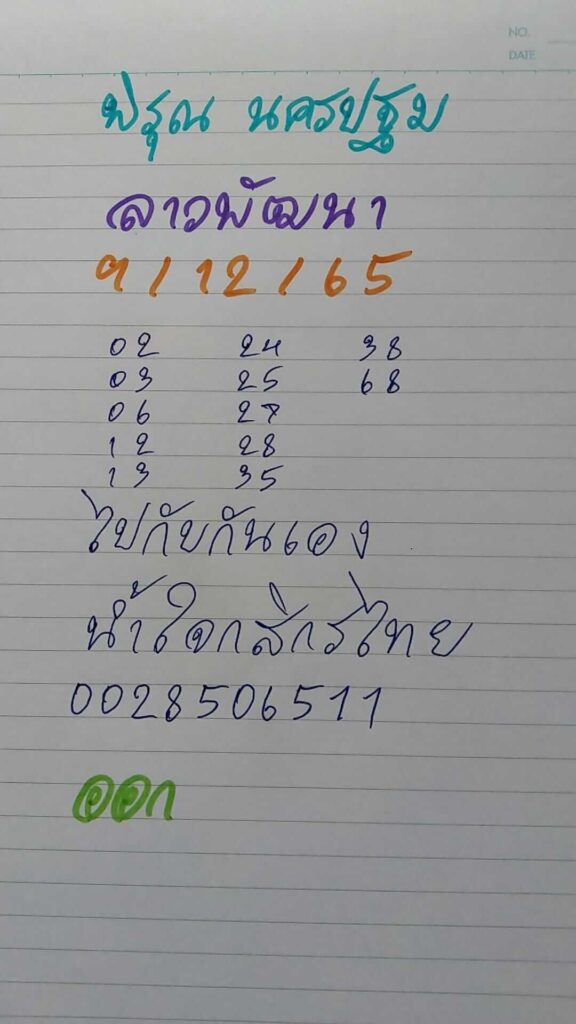 NO.
DATE
พิรุณ นครปฐม
ลาวพัฒนา
9/12/65
02 24 38
03 25 68
06 27
12 28
13 35
ไปกับกันเอง
น้ำใจกสิกรไทย
0028506511
ออก